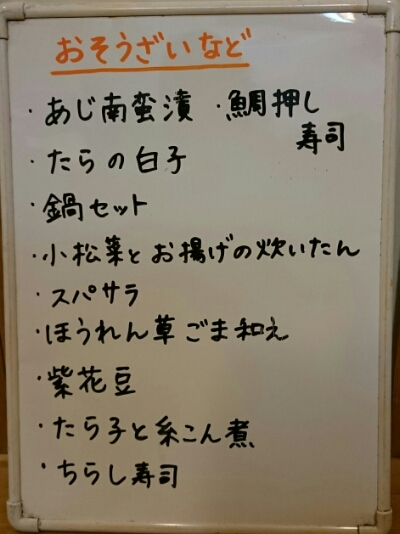 おそうざいなど
・あじ南蛮漬 ・鯛押し
寿司
・たらの白子
・鍋セット
・小松菜とお揚げの炊いたん
・スパサラ
・ほうれん草ごま和え
・紫花豆
・たら子と糸こん煮
・ちらし寿司